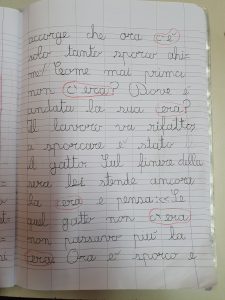 accorge che ora c'è
solo tanto sporco ahi-
me! Come mai prima
non c'era? Dove è
andata la sua cera?
Il lavoro va rifatto,
a sporcare è stato
il gatto. Sul finire della
sera lei stende ancora
la cera e pensa: «Se
quel gatto non c'era
non passavo più la
cera». Ora è sporco e